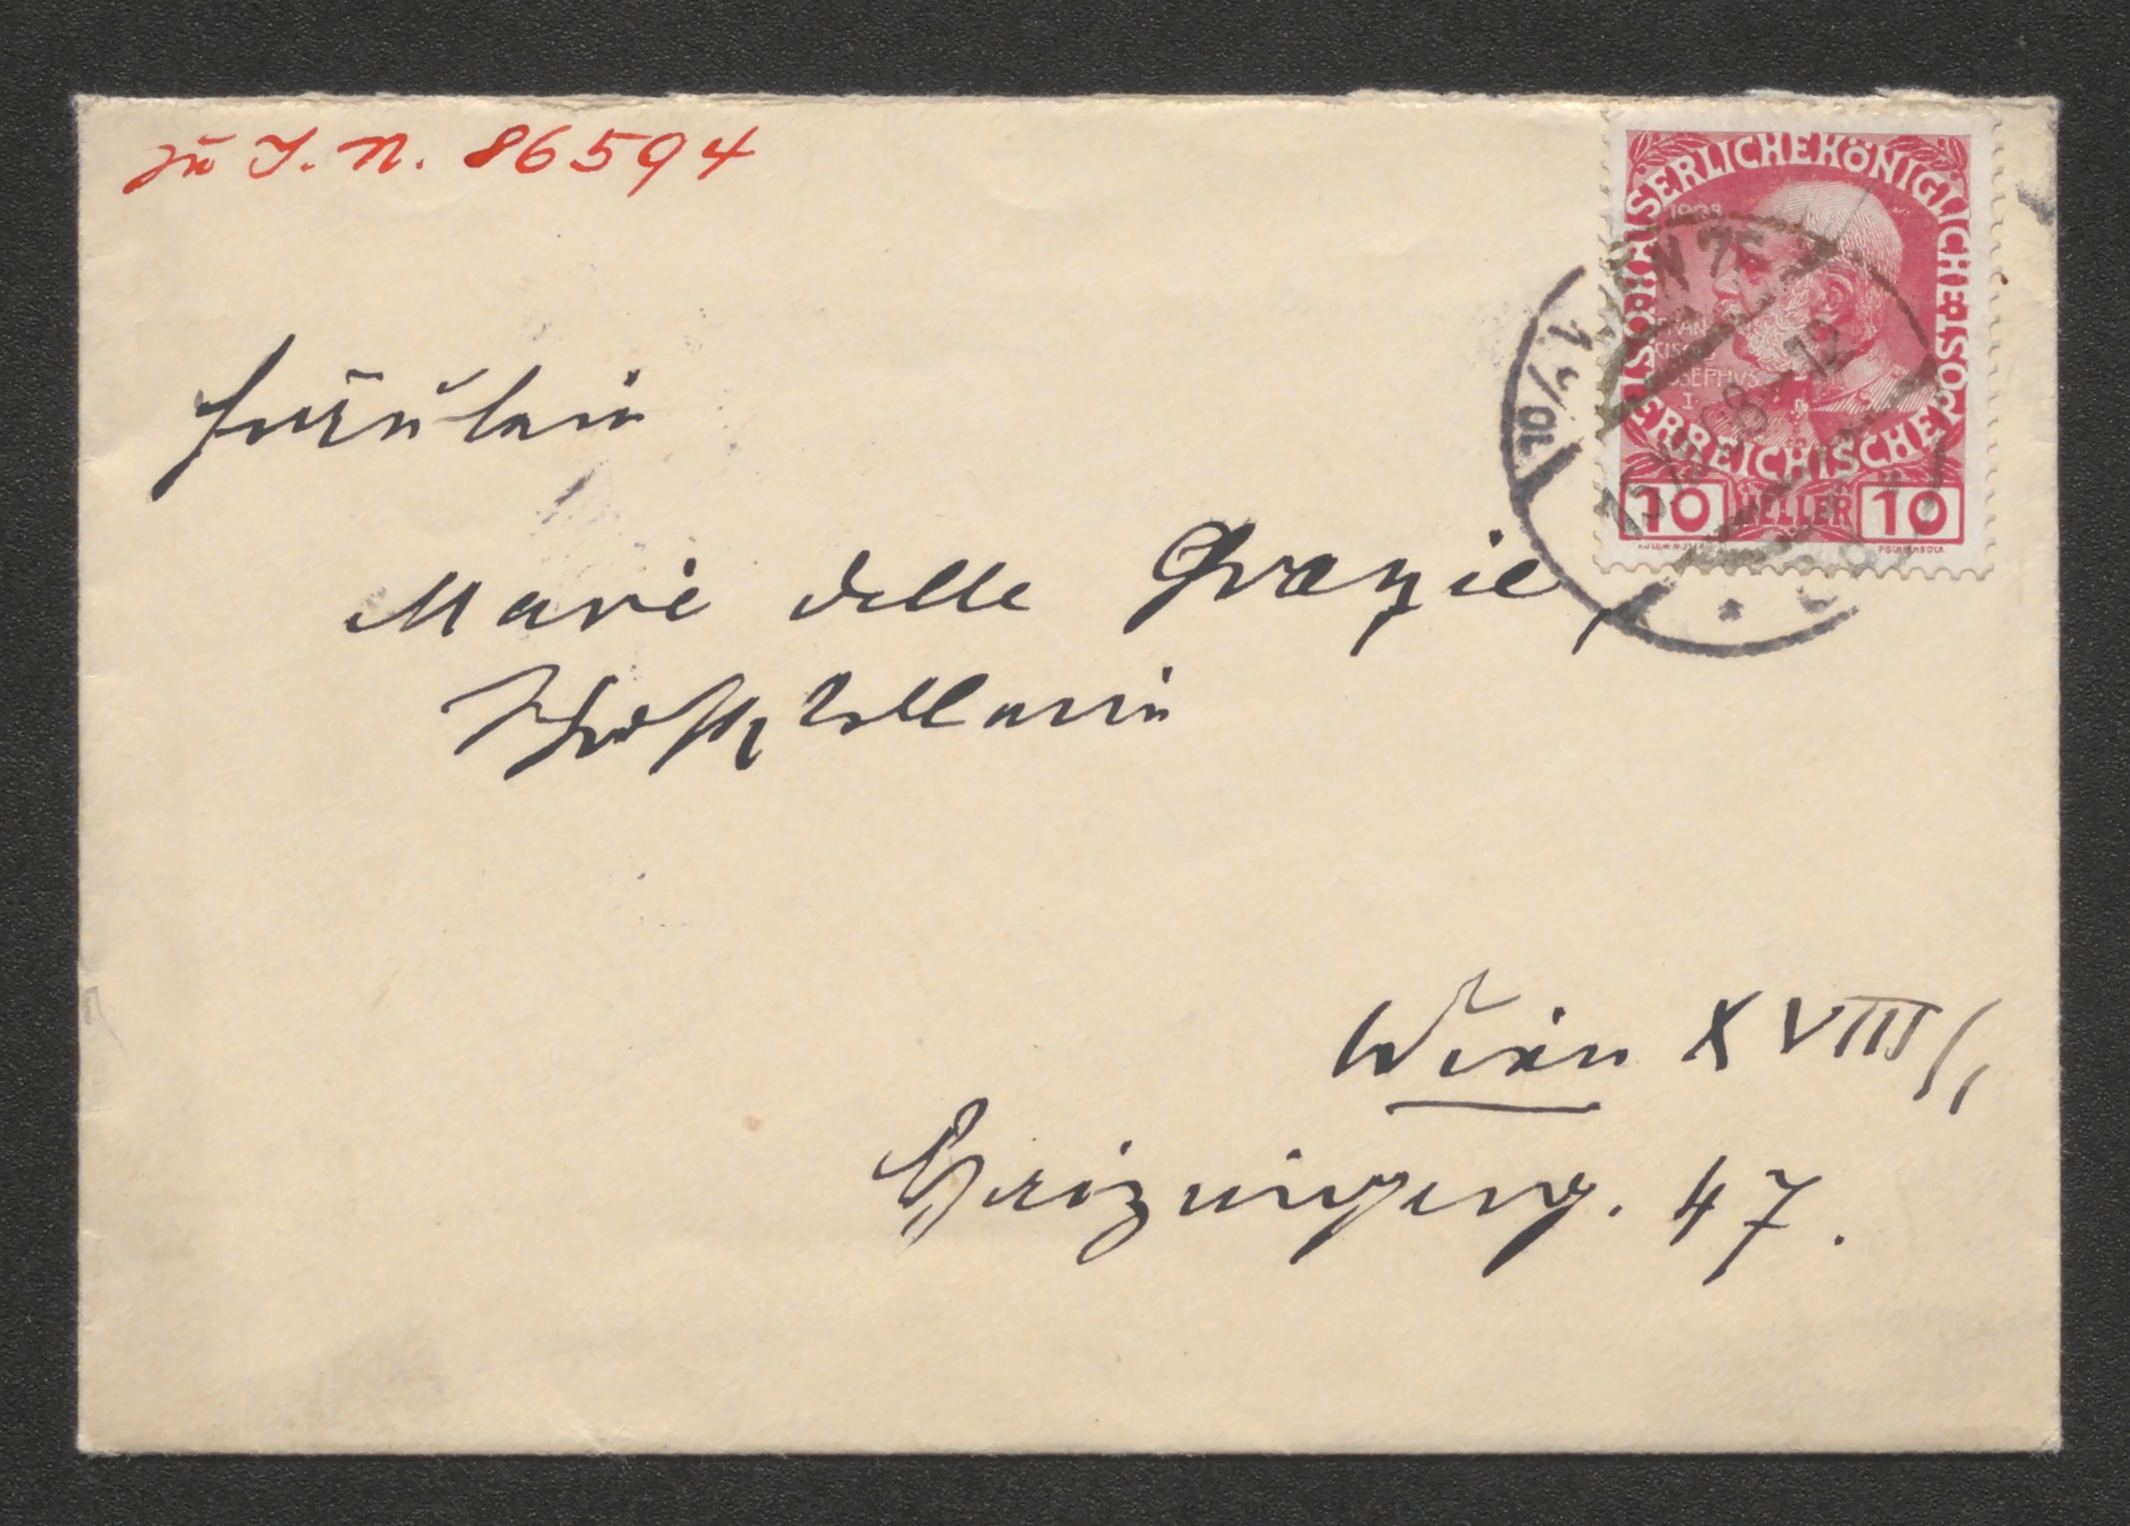 zu I. N. 86594
KAISERLICHE KÖNIGLICHE ÖSTERREICHISCHE POST
1908
FRANCISCVS JOSEPHVS I.
10 HELLER 10
Fräulein
Marie delle Grazie,
Schriftstellerin
Wien XVIII/1,
Gerizingerg. 47.